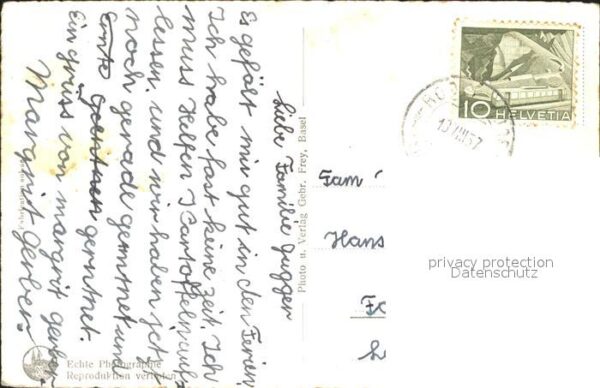 Liebe Familie Gugger
Es gefält mir gut in den Ferien
Ich habe fast keine Zeit. Ich
muss helfen Kartoffeln auf
lessen. und wir haben jetz
noch gerade gemtnet und
gerntnet.
Ein grüss von margrit gerber.
Margrit Gerber
Photo u. Verlag Gebr. Frey, Basel
Echte Photographie
Reproduktion verboten
10
HELVETIA
Fam
Hans
privacy protection
Datenschutz